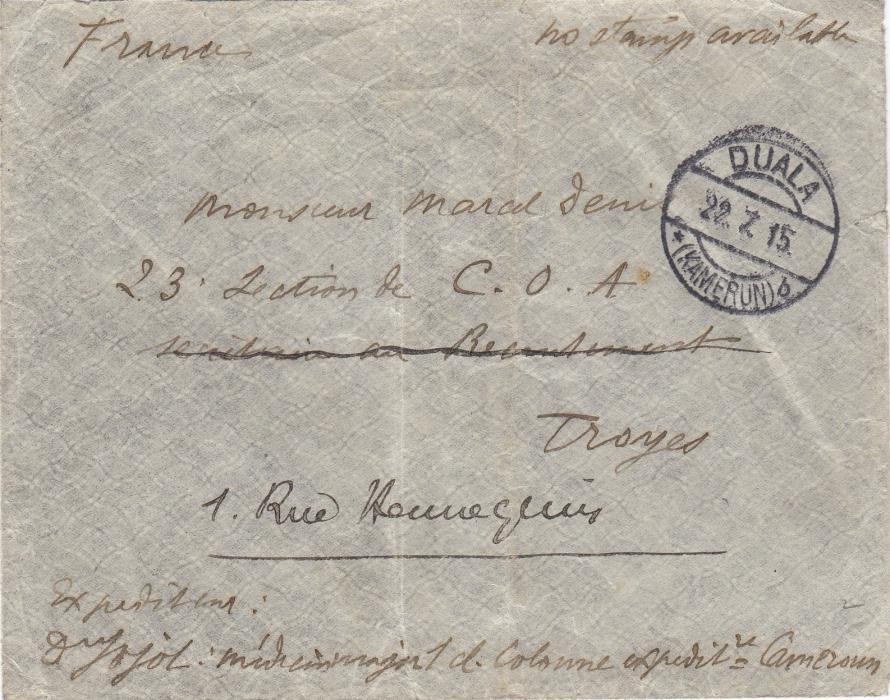 France
no stamp available
DUALA
22. 7. 15.
* (KAMERUN) b
Monsieur Marcel Denis
23e Section de C. O. A
secrétaire au Recrutement
Troyes
1. Rue Hennequin
Expediteur:
Dr Jojot: médecin major 1 cl. Colonne expeditre Cameroun